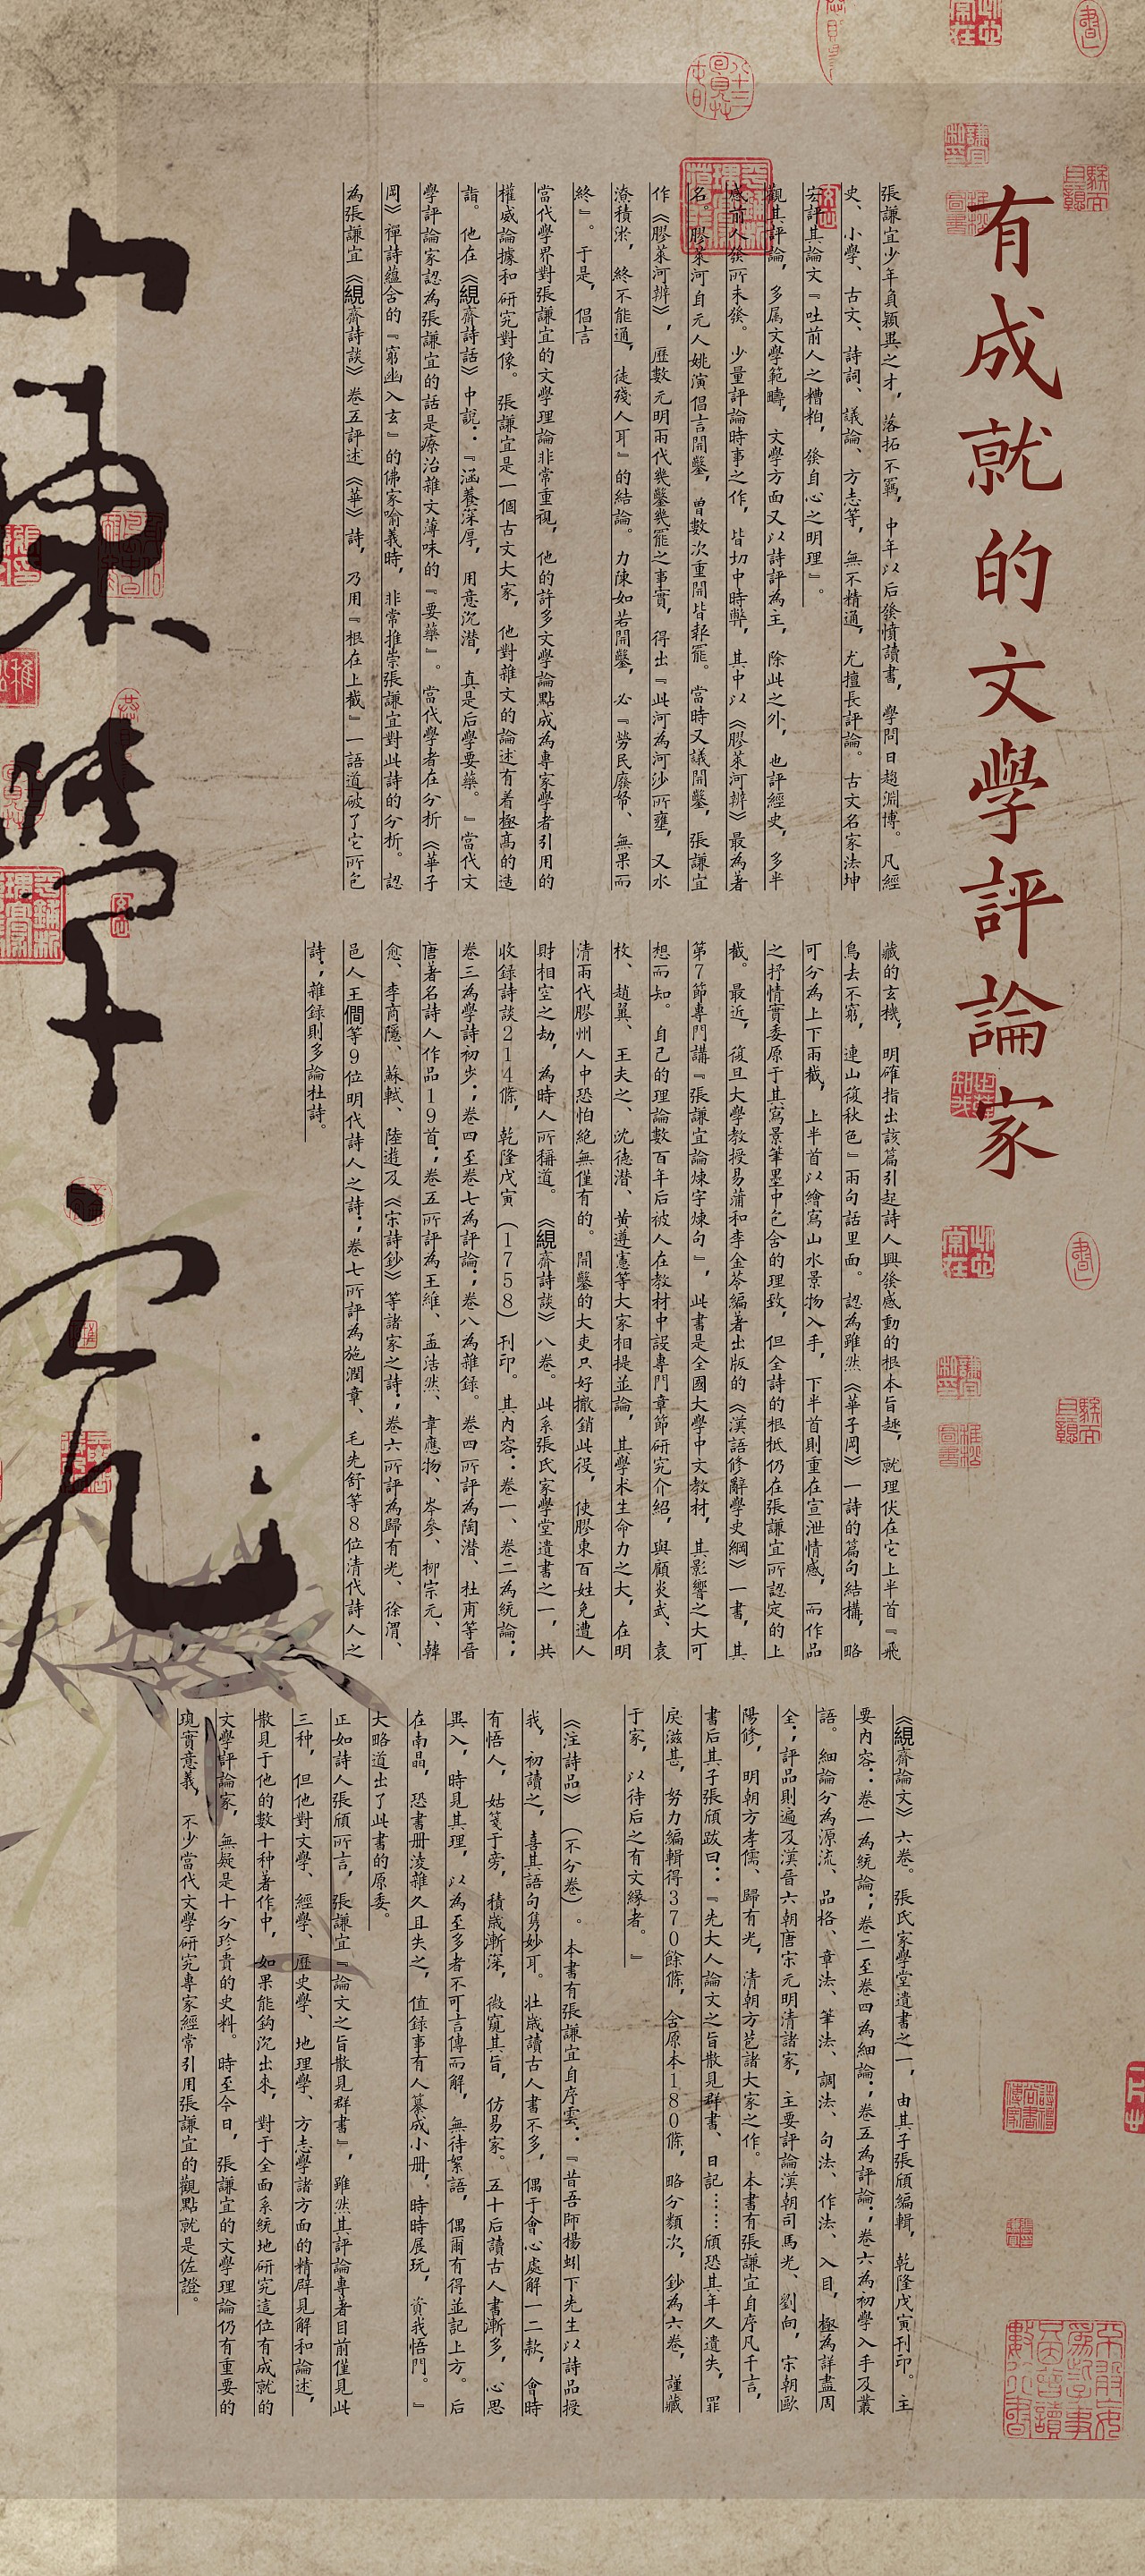 有成就的文學評論家
張謙宜少年負穎異之才，落拓不羈，中年以后發憤讀書，學問日趨淵博。凡經
史、小學、古文、詩詞、議論、方志等，無不精通，尤擅長評論。古文名家法坤
宏評其論文『吐前人之糟粕，發自心之明理』。
觀其評論，多屬文學範疇，文學方面又以詩評為主，除此之外，也評經史，多半
感前人發所未發。少量評論時事之作，皆切中時弊，其中以《膠萊河辨》最為著
名。膠萊河自元人姚演倡言開鑿，曾數次重開皆報罷。當時又議開鑿，張謙宜
作《膠萊河辨》，歷數元明兩代幾鑿幾罷之事實，得出『此河為河沙所壅，又水
潦積淤，終不能通，徒殘人耳』的結論。力陳如若開鑿，必『勞民廢帑、無果而
終』。于是，倡言
當代學界對張謙宜的文學理論非常重視，他的許多文學論點成為專家學者引用的
權威論據和研究對像。張謙宜是一個古文大家，他對雜文的論述有着極高的造
詣。他在《絸齋詩話》中說：『涵養深厚，用意沉潛，真是后學要藥。』當代文
學評論家認為張謙宜的話是療治雜文薄味的『要藥』。當代學者在分析《華子
岡》禪詩蘊含的『窮幽入玄』的佛家喻義時，非常推崇張謙宜對此詩的分析。認
為張謙宜《絸齋詩談》卷五評述《華》詩，乃用『根在上截』一語道破了它所包
藏的玄機，明確指出該篇引起詩人興發感動的根本旨趣，就理伏在它上半首『飛
鳥去不窮，連山復秋色』兩句話里面。認為雖然《華子岡》一詩的篇句結構，略
可分為上下兩截，上半首以繪寫山水景物入手，下半首則重在宣泄情感，而作品
之抒情實委原于其寫景筆墨中包含的理致，但全詩的根柢仍在張謙宜所認定的上
截。最近，復旦大學教授易蒲和李金苓編著出版的《漢語修辭學史綱》一書，其
第7節專門講『張謙宜論煉字煉句』，此書是全國大學中文教材，其影響之大可
想而知。自己的理論數百年后被人在教材中設專門章節研究介紹，與顧炎武、袁
枚、趙翼、王夫之、沈德潛、黃遵憲等大家相提並論，其學术生命力之大，在明
清兩代膠州人中恐怕絕無僅有的。開鑿的大吏只好撤銷此役，使膠東百姓免遭人
財相空之劫，為時人所稱道。《絸齋詩談》八卷。此系張氏家學堂遺書之一，共
收録詩談214條，乾隆戊寅（1758）刊印。其內容：卷一、卷二為統論；
卷三為學詩初步；卷四至卷七為評論；卷八為雜録。卷四所評為陶潛、杜甫等晉
唐著名詩人作品19首；卷五所評為王維、孟浩然、韋應物、岑參、柳宗元、韓
愈、李商隱、蘇軾、陸遊及《宋詩鈔》等諸家之詩；卷六所評為歸有光、徐渭、
邑人王僩等9位明代詩人之詩；卷七所評為施潤章、毛先舒等8位清代詩人之
詩；雜録則多論杜詩。
《絸齋論文》六卷。張氏家學堂遺書之一，由其子張頎編輯，乾隆戊寅刊印。主
要內容：卷一為統論；卷二至卷四為細論；卷五為評論；卷六為初學入手及叢
語。細論分為源流、品格、章法、筆法、調法、句法、作法、入目，極為詳盡周
全；評品則遍及漢晉六朝唐宋元明清諸家，主要評論漢朝司馬光、劉向，宋朝歐
陽修，明朝方孝儒、歸有光，清朝方苞諸大家之作。本書有張謙宜自序凡千言，
書后其子張頎跋曰：『先大人論文之旨散見群書、日記……頎恐其年久遺失，罪
戾滋甚，努力編輯得370餘條，含原本180條，略分類次，鈔為六卷，謹藏
于家，以待后之有文緣者。』
《注詩品》（不分卷）。本書有張謙宜自序雲：『昔吾師楊蚓下先生以詩品授
我，初讀之，喜其語句隽妙耳。壯歲讀古人書不多，偶于會心處解一二款，會時
有悟人，姑箋于旁，積歲漸深，微窺其旨，仿易家。五十后讀古人書漸多，心思
異入，時見其理，以為至多者不可言傳而解，無待絮語，偶爾有得並記上方。后
在南晶，恐書册淩雜久且失之，值録事有人纂成小册，時時展玩，資我悟門。』
大略道出了此書的原委。
正如詩人張頎所言，張謙宜『論文之旨散見群書』，雖然其評論專著目前僅見此
三种，但他對文學、經學、歷史學、地理學、方志學諸方面的精辟見解和論述，
散見于他的數十种著作中，如果能鈎沉出來，對于全面系統地研究這位有成就的
文學評論家，無疑是十分珍貴的史料。時至今日，張謙宜的文學理論仍有重要的
現實意義，不少當代文學研究專家經常引用張謙宜的觀點就是佐證。